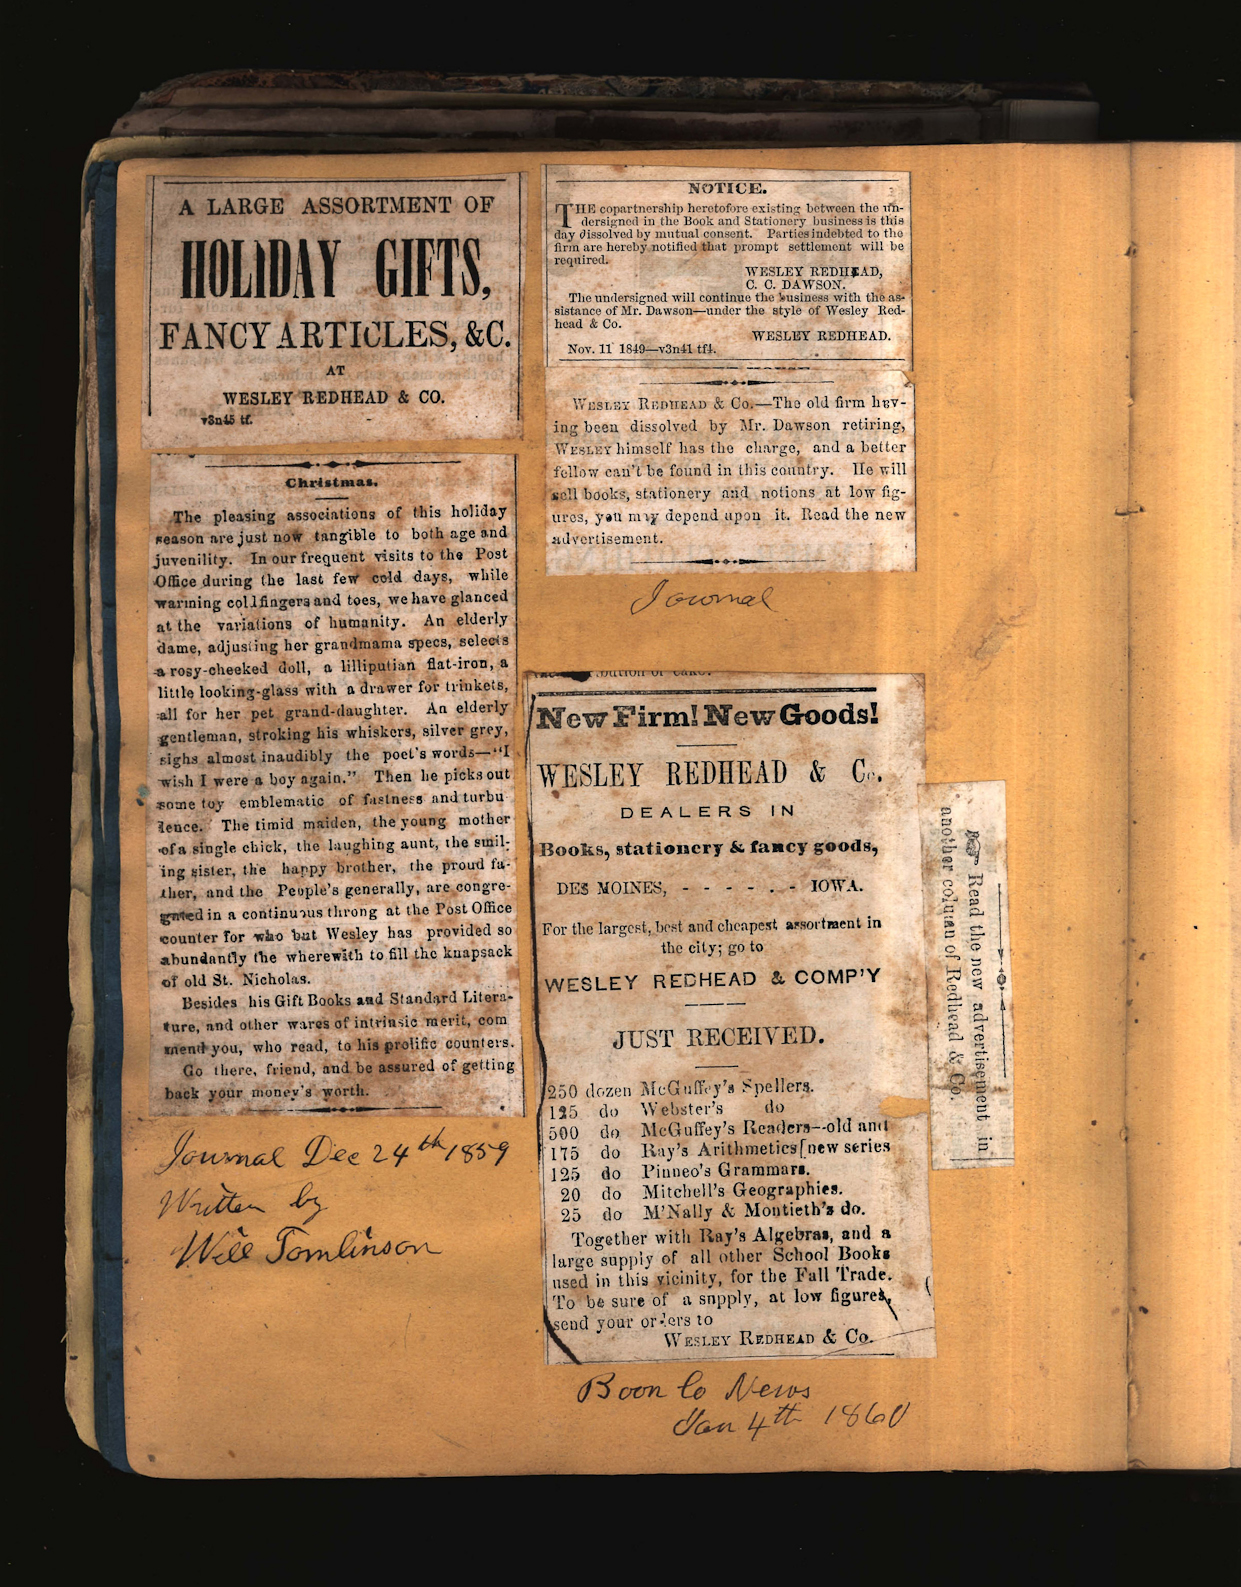 A LARGE ASSORTMENT OF
HOLIDAY GIFTS,
FANCY ARTICLES, &C.
AT
WESLEY REDHEAD & CO.
v3n45 tf.
Christmas.
The pleasing associations of this holiday
season are just now tangible to both age and
juvenility. In our frequent visits to the Post
Office during the last few cold days, while
warming coll fingers and toes, we have glanced
at the variations of humanity. An elderly
dame, adjusting her grandmama specs, selects
a rosy-cheeked doll, a lilliputian flat-iron, a
little looking-glass with a drawer for trinkets,
all for her pet grand-daughter. An elderly
gentleman, stroking his whiskers, silver grey,
sighs almost inaudibly the poet's words—"I
wish I were a boy again." Then he picks out
some toy emblematic of fastness and turbu
lence. The timid maiden, the young mother
of a single chick, the laughing aunt, the smil-
ing sister, the happy brother, the proud fa-
ther, and the People's generally, are congre-
gated in a continuous throng at the Post Office
counter for who but Wesley has provided so
abundantly the wherewith to fill the knapsack
of old St. Nicholas.
Besides his Gift Books and Standard Litera-
ture, and other wares of intrinsic merit, com
mend you, who read, to his prolific counters.
Go there, friend, and be assured of getting
back your money's worth.
Journal Dec 24th 1859
Written by
Will Tomlinson
NOTICE.
THE copartnership heretofore existing between the un-
dersigned in the Book and Stationery business is this
day dissolved by mutual consent. Parties indebted to the
firm are hereby notified that prompt settlement will be
required.
WESLEY REDHEAD,
C. C. DAWSON.
The undersigned will continue the business with the as-
sistance of Mr. Dawson—under the style of Wesley Red-
head & Co.
WESLEY REDHEAD.
Nov. 11 1849—v3n41 tf4.
WESLEY REDHEAD & Co.—The old firm hav-
ing been dissolved by Mr. Dawson retiring,
WESLEY himself has the charge, and a better
fellow can't be found in this country. He will
sell books, stationery and notions at low fig-
ures, you may depend upon it. Read the new
advertisement.
Journal
New Firm! New Goods!
WESLEY REDHEAD & Co.
DEALERS IN
Books, stationery & fancy goods,
DES MOINES, - - - - - - IOWA.
For the largest, best and cheapest assortment in
the city; go to
WESLEY REDHEAD & COMP'Y
JUST RECEIVED.
250 dozen McGuffey's Spellers.
125 do Webster's do
500 do McGuffey's Readers--old and
175 do Ray's Arithmetics [new series
125 do Pinneo's Grammars.
20 do Mitchell's Geographies.
25 do M'Nally & Montieth's do.
Together with Ray's Algebras, and a
large supply of all other School Books
used in this vicinity, for the Fall Trade.
To be sure of a snpply, at low figures,
send your orders to
WESLEY REDHEAD & Co.
Boon Co News
Jan 4th 1860
Read the new advertisement in
another coluan of Redhead & Co.